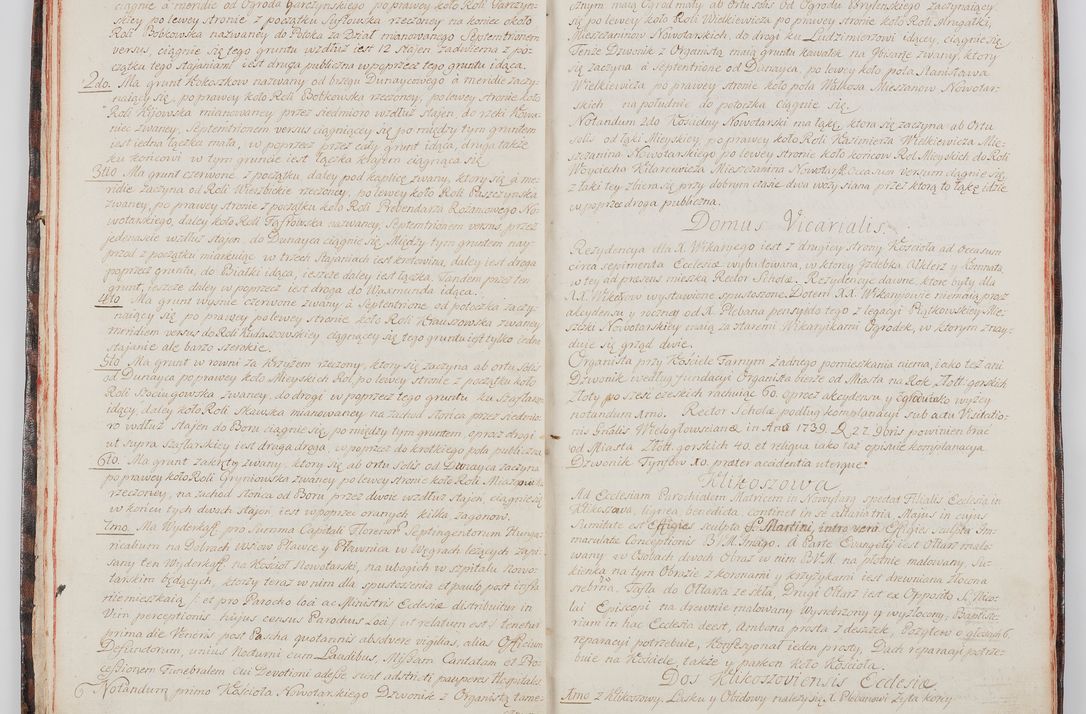 ciągnie à meridie od Ogroda Garczynskiego po prawey koło Roli Garczyn-
skiey po lewey stronie z początku Suflowska rzeczoney na koniec około
Roli Bobkowska nazwaney do Potoka za Dział mianowanego Septemtrionem
versus, ciągnie się tego gruntu wzdłuż iest 12 stajen zadwierna z po-
czątku tego stajaniami iest druga publiczna w poprzecz tego gruntu idąca.
2do. Ma grunt Kokoszkow nazwany od brzegu Dunaycowego à meridie zaczy-
naiący się, po prawey koło Roli Bobkowska rzeczoney, po lewey stronie koło
Roli Kijowska mianowaney przez siedmioro wzdłuż stajen, do rzeki Kowa-
niec zwaney, Septemtrionem versus ciągnący się po między tym gruntem
iest iedna łączka mała, w poprzecz przez cały grunt idąca, druga także
ku koncowi w tym gruncie iest łączka klajem ciągnąca się.
3tio Ma grunt czerwone z początku, daley pod kaplicę zwany, ktory się à me-
ridie zaczyna od Roli Wiezbickie rzeczoney, po lewey koło Roli Paszczynska
zwaney, po prawey stronie z początku koło Roli Prebendarza Rożancowego No-
wotarskiego, daley koło Roli Fajfrowska nazwaney, Septemtrionem versus, przez
jedenascie wzdłuż stajen, do Dunayca ciągnie się, Między tym gruntem nay-
przod z początku mianuiąc w trzech stajaniach iest krotowina, daley iest droga
poprzecz gruntu, do Białki idąca, ieszcze daley iest łączka, Tandem przez ten
grunt, ieszcze daley w poprzecz iest droga do Waxmunda idąca.
4to. Ma grunt wyżnie czerwone zwany à Septentrione od potoczka zaczy-
naiący się po prawey po lewey stronie koło Roli Krauszowska zwaney
meridiem versus do Roli Kudaszowskiey ciągnący się tego gruntu iest tylko iedno
stajanie ale barzo szerokie.
5to. Ma grunt w rowni za Krzyżem rzeczony, ktory się zaczyna ab ortu solis
od Dunayca po prawey koło Mieyskich Rol po lewey stronie z początku koło
Roli Szociugowska zwaney, do drogi w poprzecz tego gruntu ku Szaflarom
idącey, daley koło Roli Skawska mianowaney na zachod słońca przez siedmio-
ro wdłuż stajen do Boru ciągnie się, po między tym gruntem, oprocz drogi
ut supra Szaflarskiey iest druga droga, w poprzecz do krotkiego pola publiczna
6to. Ma grunt zakręty zwany, ktory się ab ortu Solis od Dunayca zaczyna
po prawey koło Roli Gryniowska zwaney po lewey stronie koło Roli Miaszpinka
rzeczoney, na zachod słońca od Boru, przez dwoie wzdłuż stajen, ciągnie się
w koncu tych dwoch stajen iest w poprzecz oranych kilka zagonow.
7mo. Ma Wyderkaff pro Summa Capitali Florenor: Septingentorum Hunga-
ricalium na Dobrach wsiow Pławce y Pławnica w Węgrach leżących zapi-
sany ten Wyderkaff na Kościoł Nowotarski, na ubogich w szpitalu Nowo-
tarskim będących, ktorzy teraz w nim dla spustoszenia et paulo post infra
nie mieszkaią /: et pro Parocho loci ac Ministris Ecclesiæ distribuitur in
Vim perceptionis hujus census Parochus Loci /: ut relatum est :/ tenetur
prima die Veneris post Pascha quotannis absolvere vigilias, alia Officium
Defunctorum, unius Nocturni cum Laudibus, Missam Cantatam et Pro-
cessionem Funebralem cui Devotioni adesse sunt adstricti pauperes Hospitales.
6 Notandum primo Kościoła Nowotarskiego Dzwonik z Organistą tame-
cznym maią Ogrod mały ab Ortu Solis Od Ogrodu Brylenskiego zaczynaiący
się po lewey koło Roli Wielkiewicza po prawey stronie koło Roli Strugałki,
Mieszczaninow Nowotarskich, do drogi ku Ludzimierzowi idącey, ciągnie się
Tenże Dzwonik z Organistą maią gruntu kawałek na Ibisorze zwany, ktory
się zaczyna à Septentrione od Dunayca, po lewey koło pola Stanisława
Wielkiewicza po prawey stronie koło pola Walkosa Mieszczanow Nowotar-
skich na południe do potoczka ciągnie się.
Notandum 2do Kościelny Nowotarski ma łąkę, ktora się zaczyna ab Ortu
Solis od łąki Mieyskiey po prawey koło Roli Kazimierza Wielkiewicza Mie-
szczanina Nowotarskiego po lewey stronie koło koncow Rol Mieyskich do Roli
Woyciecha Kilarewicza Mieszczanina Nowotarsk: Occasum versum ciągnie się,
z taki tey zbiera się przy dobrym czasie dwa wozy siana przez ktorą to łąkę idzie
w poprzec droga publiczna.
Domus Vicarialis.
Rezydencya dla X. Wikaryiego iest z drugiey strony Kościoła ad Occasum
circa sepimenta Ecclesiæ wybudowana, w ktorey Izdebka, Alklerz y Komnata,
w tey ad præsens mieszka Rector Scholæ. Rezydencye dawne, ktore były dla
XX. Wikarow wystawione spustoszone. Dotem XX. Wikaryiowie niemaią præter
akcydensu y roczney od X. Plebana pensyi do tego z legacyi Piątkowskiey Mie-
szczki Nowotarskiey maią za staremi Wikaryikami Ogrodek, w ktorym znay-
duie się grząd dwie.
Organista przy Kościele Farnym żadnego pomieszkania niema, iako też ani
Dzwonik według fundacyi Organista bierze od Miasta na Rok Złott: gorskich
Złoty po sześć czeskich rachuiąc 60. oprocz akcydensu y ogrodu iako wyżey
notandum 1mo. Rector Scholæ podług komplanacyi sub actu Visitatio-
nis Gnalis Wielogłowscianæ in Anō 1739. D. 27. 9bris powinien brać
od Miasta Złott: gorskich 40. et reliqua iako taż opisuie komplanacya.
Dzwonik Tynfow 10. præter accidentia utergue.
Klikoszowa.
Ad Ecclesiam Parochialem Matricem in Nowytarg spectat Filialis Ecclesia in
Klikosowa, lignea, benedicta, continet in se altaria tria, Majus in cujus
Sumitate est Effigies sculpta S. Martini, intro vero Effigie sculpta Im-
maculatæ Conceptionis B.V.M. Imago. A Parte Evangelij iest Ołtarz malo-
wany w Bokach dwoch Obraz w nim B.V.M. na płotnie malowany, Su-
kienka na tym Obrazie z koronami y krzyżykami iest drewniana złocona
srebrna. Tafla do Ołtarza ze szkła, Drugi Ołtarz iest ex Opposito S. Miko-
łai Episcopi na drewnie malowany wysrebrzony y wyzłocony. Baptiste-
rium in hac Ecclesia deest, Ambona prosta z deszczek, Pozytyw o głosach 6.
reparacyi potrzebuie, Konfesyonał ieden prosty, Dach reparacyi potrze-
buie na Kościele, także y parkon koło Kościoła.
Dos Klikoszoviensis Ecclesiæ
1mo z Klikoszowy, Lasku y Obidowy należy się X. Plebanowi Zyta korcy